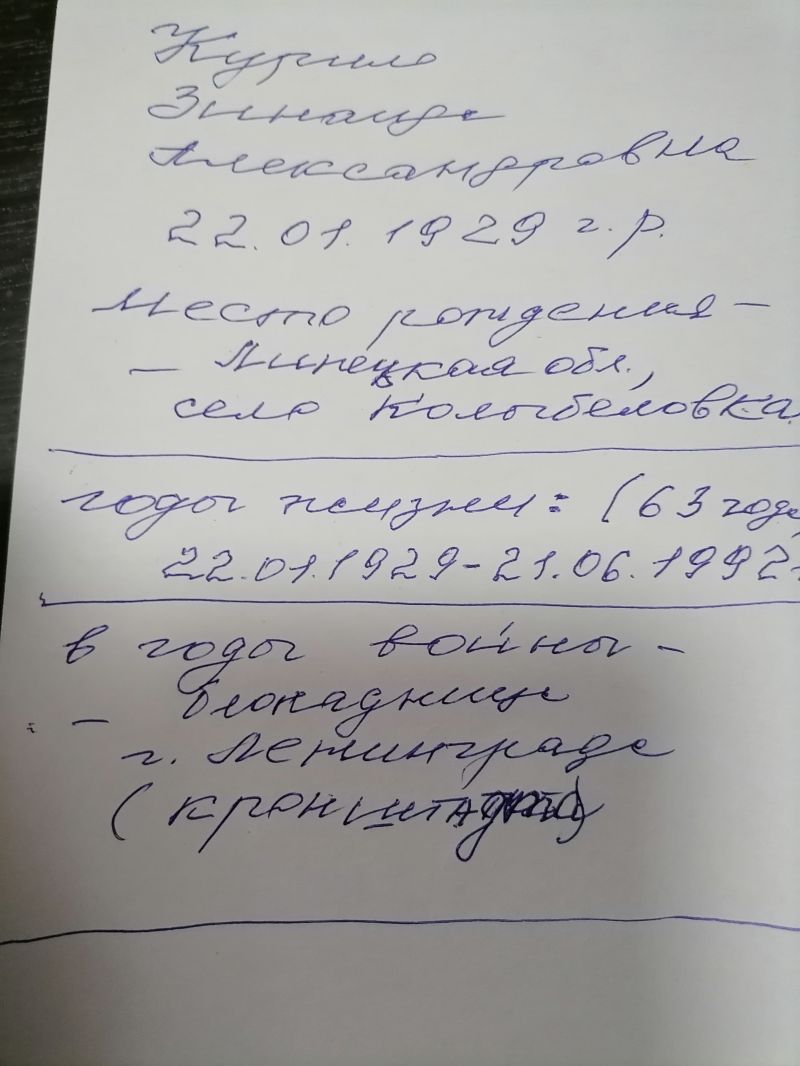 Курило
Зинаида
Александровна
22.01.1929 г.р.
Место рождения –
– Липецкая обл.,
село Колыбеловка.
годы жизни: (63 года
22.01.1929-21.06.1992г
в годы войны –
– блокадница
г. Ленинграда
(Кронштадта)